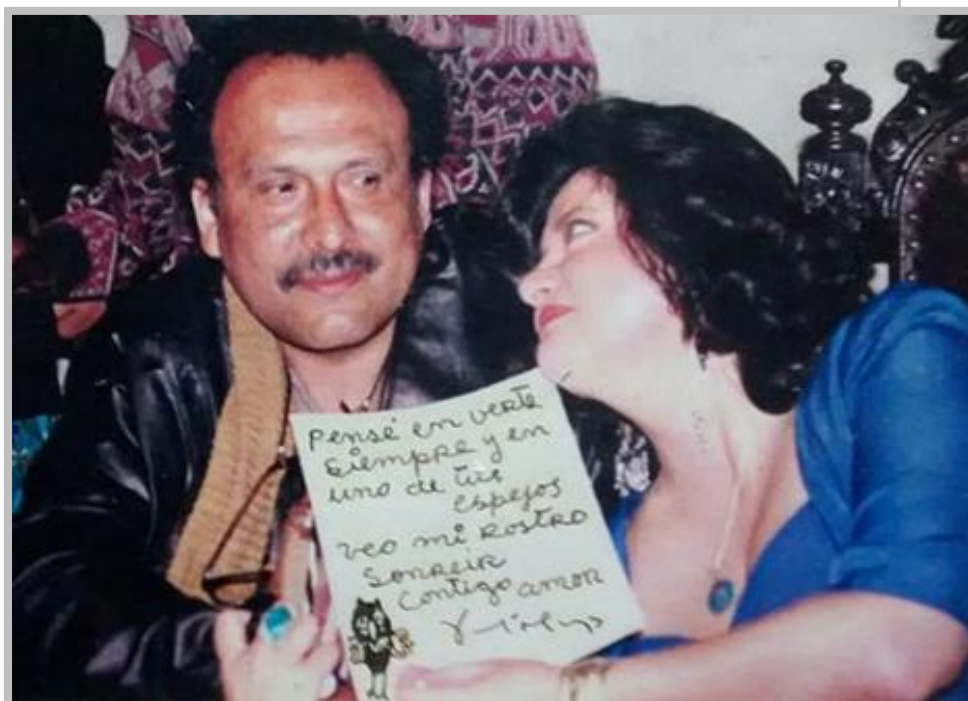 Pensé en verte
siempre y en
uno de tus
espejos
veo mi rostro
sonreir
contigo amor